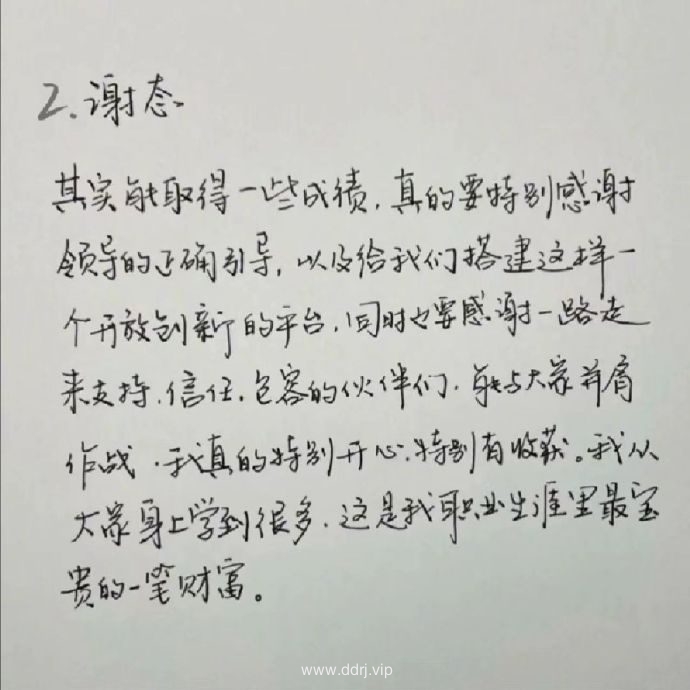 2.谢态
其实能取得一些成绩，真的要特别感谢
领导的正确引导，以及给我们搭建这样一
个开放创新的平台，同时也要感谢一路走
来支持、信任、包容的伙伴们，能与大家并肩
作战，我真的特别开心，特别有收获。我从
大家身上学到很多，这是我职业生涯里最宝
贵的一笔财富。
www.ddrj.vip